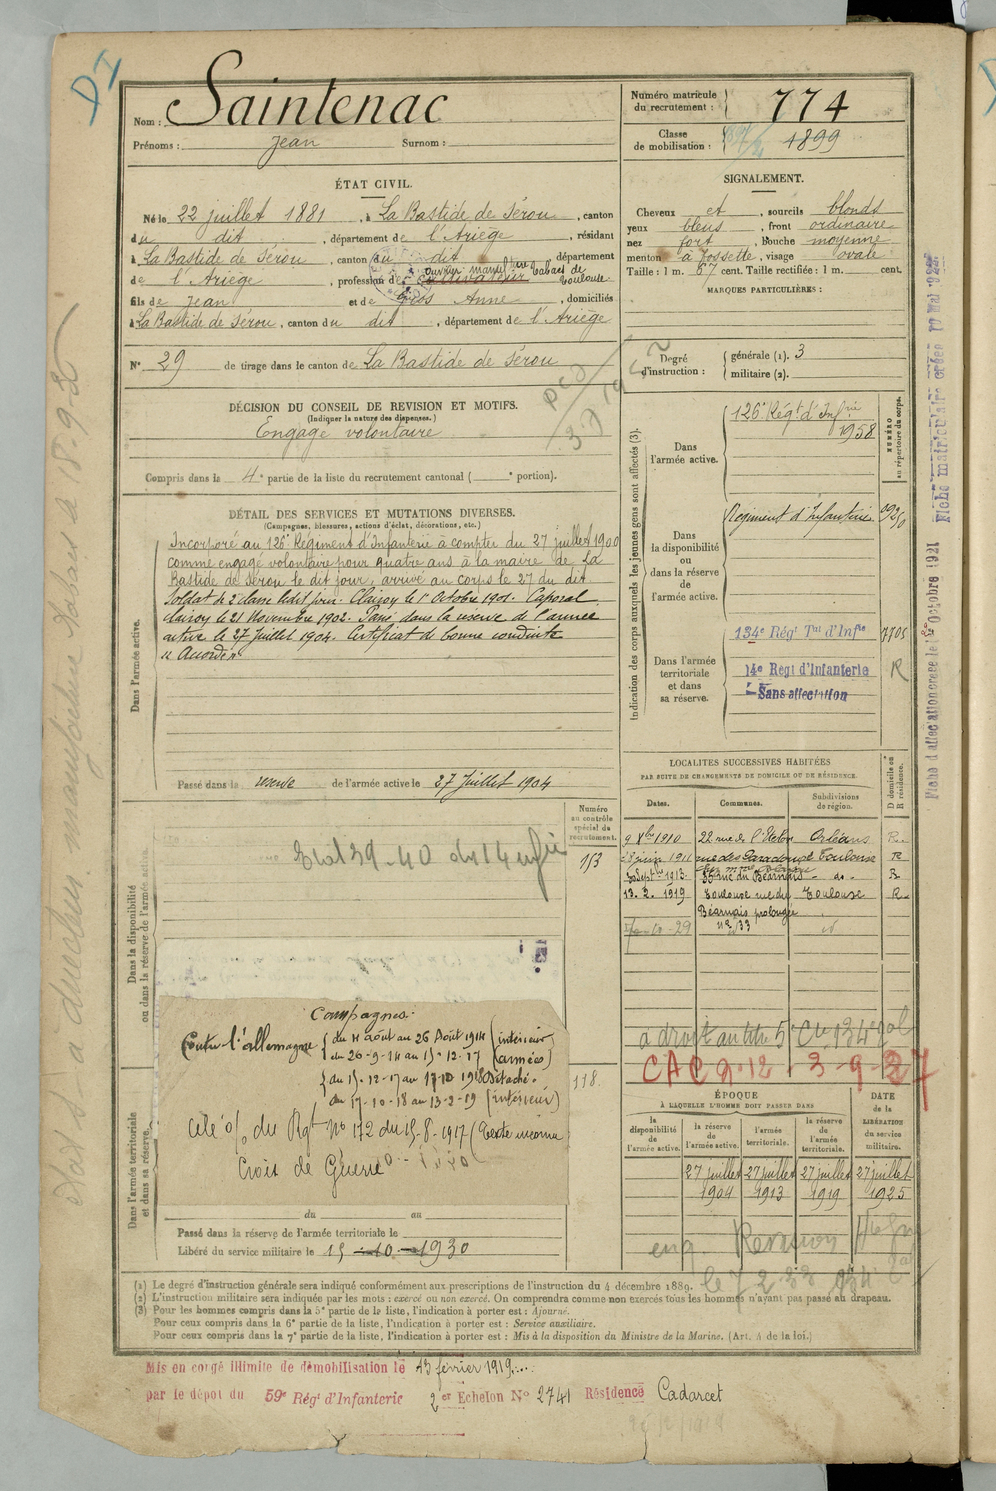 DI
Nom : Saintenac
Prénoms : Jean Surnom :
Numéro matricule
du recrutement : 774
Classe
de mobilisation : 1899
ÉTAT CIVIL.
Né le 22 juillet 1881, à La Bastide de Sérou, canton
du dit, département de l'Ariège, résidant
à La Bastide de Sérou, canton du dit département
de l'Ariège, profession de cultivateur ouvrier manufture tabacs de
Toulouse
fils de Jean et de Gros Anne, domiciliés
à La Bastide de Sérou, canton du dit, département de l'Ariège
N° 29 de tirage dans le canton de La Bastide de Sérou
SIGNALEMENT.
Cheveux et, sourcils blonds
yeux bleus, front ordinaire
nez fort, bouche moyenne
menton à fossette, visage ovale
Taille : 1 m. 67 cent. Taille rectifiée : 1 m. cent.
MARQUES PARTICULIÈRES :
Degré
d'instruction : générale (1). 3
militaire (2).
DÉCISION DU CONSEIL DE REVISION ET MOTIFS.
(Indiquer la nature des dispenses.)
Engagé volontaire
Compris dans la 4e partie de la liste du recrutement cantonal ( e portion).
DÉTAIL DES SERVICES ET MUTATIONS DIVERSES.
(Campagnes, blessures, actions d'éclat, décorations, etc.)
Dans l'armée active.
Incorporé au 126e Régiment d'Infanterie à compter du 27 juillet 1900
comme engagé volontaire pour quatre ans à la mairie de La
Bastide de Sérou le dit jour, arrivé au corps le 27 du dit
Soldat de 2e classe ledit jour. Clairon le 1er Octobre 1901. Caporal
clairon le 21 Novembre 1902. Passé dans la réserve de l'armée
active le 27 Juillet 1904. Certificat de bonne conduite
"Accordé"
Passé dans la réserve de l'armée active le 27 Juillet 1904
Indication des corps auxquels les jeunes gens sont affectés (3).
NUMÉRO
au répertoire du corps.
Dans
l'armée active.
126e Régt d'Infrie
1958
Dans
la disponibilité
ou
dans la réserve
de
l'armée active.
Régiment d'Infanterie
Dans l'armée
territoriale
et dans
sa réserve.
134e Régt Tal d'Infie 7705
14e Régt d'Infanterie R
Sans affectation
LOCALITÉS SUCCESSIVES HABITÉES
PAR SUITE DE CHANGEMENTS DE DOMICILE OU DE RÉSIDENCE.
Dates. Communes. Subdivisions
de région. D domicile ou
R résidence.
9 Xbre 1910 22 rue de l' Orléans R
juin 1911 rue des Paradoux Toulouse R
Septbre 1913 rue du Béarnais do R
13. 2. 1919 Toulouse rue du Toulouse R
Béarnais prolongée
10-29 n° 33 id
Numéro
au contrôle
spécial du
recrutement.
153
118.
Dans la disponibilité
ou dans la réserve de l'armée active.
Etat 39-40 du 14 infie
Campagnes.
Contre l'allemagne du 4 août au 26 Août 1914 (intérieur)
du 26-9-14 au 15-12-17 (armées)
du 15-12-17 au 17-10-1918 Détaché.
du 17-10-18 au 13-2-19 (intérieur)
Cité o/ du Rgt N° 172 du 15-8-1917 (Texte inconnu)
Croix de Guerre
Dans l'armée territoriale
et dans sa réserve.
du au
Passé dans la réserve de l'armée territoriale le
Libéré du service militaire le 15-10-1930
a droit au titre 5
CAC 9.12 - 3-9-27
ÉPOQUE
À LAQUELLE L'HOMME DOIT PASSER DANS
DATE
de la
LIBÉRATION
du service
militaire.
la
disponibilité
de
l'armée active. la réserve
de
l'armée active. l'armée
territoriale. la réserve
de
l'armée
territoriale.
27 juillet 27 juillet 27 juillet 27 juillet
1904 1913 1919 1925
le 7 2 33
(1) Le degré d'instruction générale sera indiqué conformément aux prescriptions de l'instruction du 4 décembre 1889.
(2) L'instruction militaire sera indiquée par les mots : exercé ou non exercé. On comprendra comme non exercés tous les hommes n'ayant pas passé au drapeau.
(3) Pour les hommes compris dans la 5e partie de le liste, l'indication à porter est : Ajourné.
Pour ceux compris dans la 6e partie de la liste, l'indication à porter est : Service auxiliaire.
Pour ceux compris dans la 7e partie de la liste, l'indication à porter est : Mis à la disposition du Ministre de la Marine. (Art. 4 de la loi.)
Mis en congé illimité de démobilisation le 13 février 1919
par le dépôt du 59e Régt d'Infanterie 2er Echelon N° 2741 Résidence Cadarcet
Fiche d'affectation créée le Octobre 1921
Fiche matriculaire créée 10 Mai